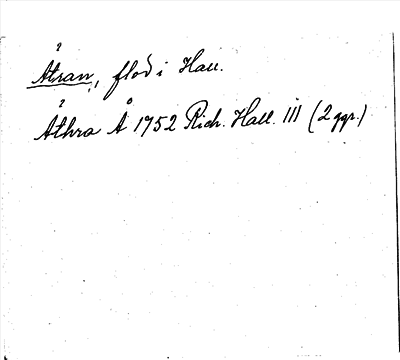 Ätran, flod i Hall.
Äthra Å 1752 Rich. Hall. III (2 ggr.)